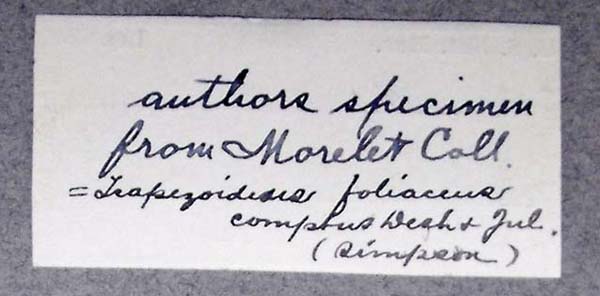 authors specimen
from Morelet Coll.
= Trapezoideus foliaceus
comptus Desh & Jul.
(Simpson)